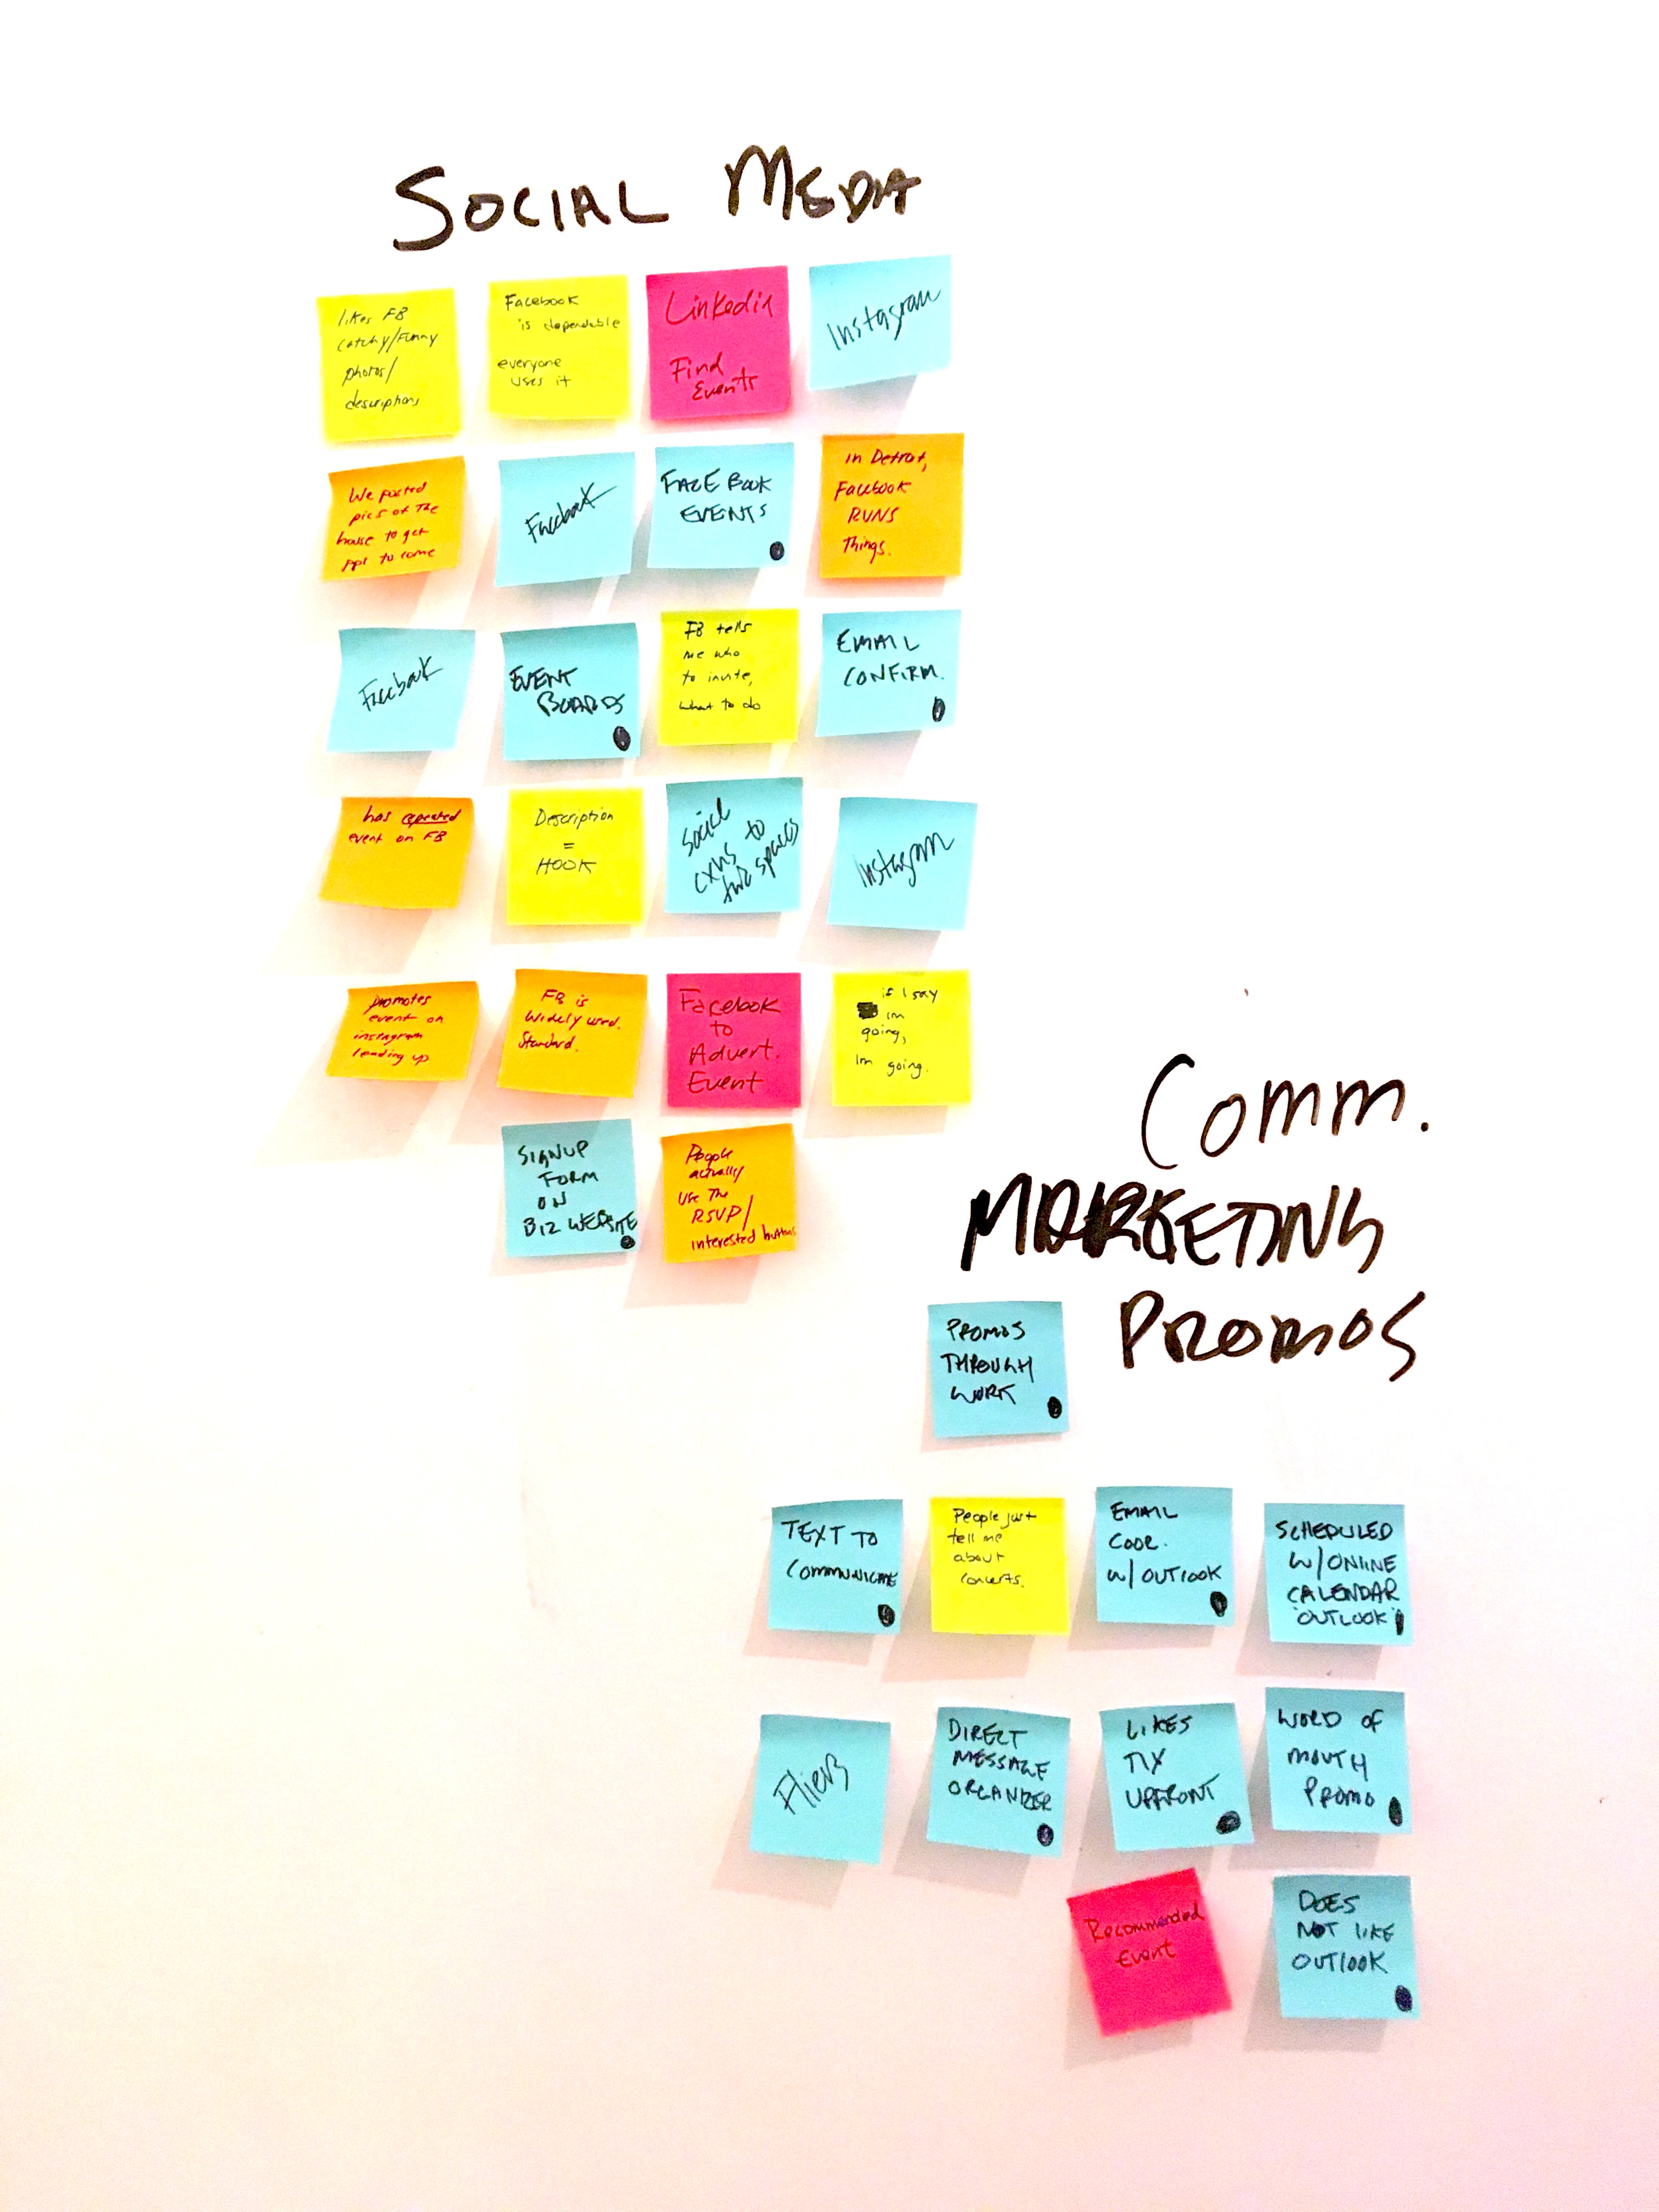 SOCIAL MEDIA
likes FB
catchy/funny
photos/
descriptions
Facebook
is dependable
everyone
uses it
Linkedin
Find
Events
Instagram
We posted
pics of the
house to get
ppl to come
Facebook
FACEBOOK
EVENTS
in Detroit,
Facebook
RUNS
Things.
Facebook
EVENT
BOARDS
FB tells
me who
to invite,
what to do
EMAIL
CONFIRM.
has repeated
event on FB
Description
=
HOOK
Social
cxns to
spaces
Instagram
promotes
event on
instagram
leading up
FB is
Widely used.
Standard.
Facebook
to
Advert.
Event
if I say
im
going,
Im going.
SIGNUP
FORM
ON
BIZ WEBSITE
People
actually
use the
RSVP/
interested buttons
Comm.
MARKETING
PROMOS
PROMOS
THROUGH
WORK
TEXT TO
COMMUNICATE
People just
tell me
about
concerts.
EMAIL
COOR.
W/OUTLOOK
SCHEDULED
W/ONLINE
CALENDAR
"OUTLOOK"
Fliers
DIRECT
MESSAGE
ORGANIZER
LIKES
TIX
UPFRONT
WORD OF
MOUTH
PROMO
Recommended
Event
DOES
NOT LIKE
OUTLOOK